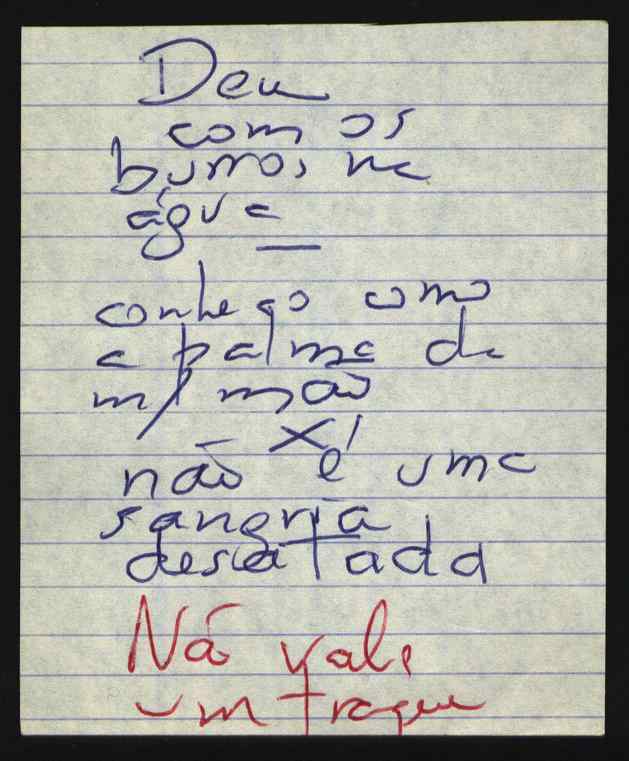 Deu
com os
burros na
água —
conheço como
a palma da
m/ mão
X
não é uma
sangria
desatada
Nã vale
um traque